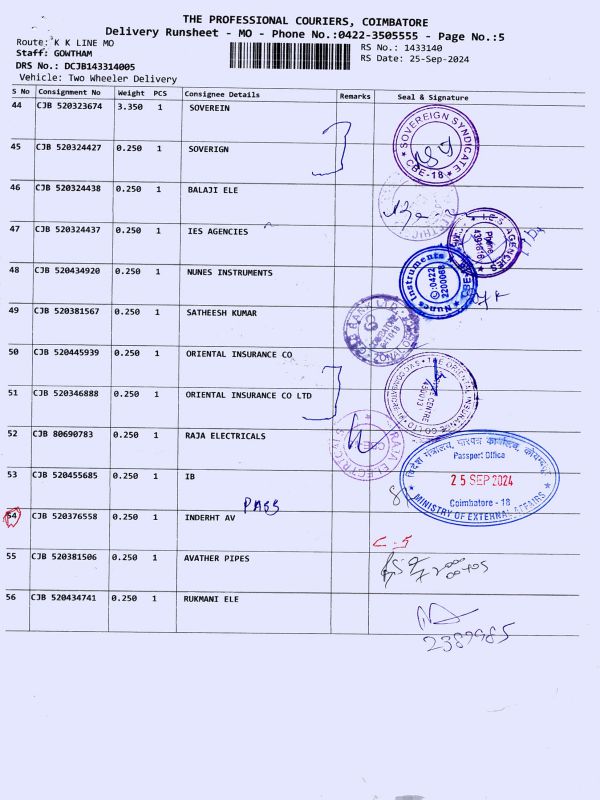 THE PROFESSIONAL COURIERS, COIMBATORE
Delivery Runsheet - MO - Phone No.:0422-3505555 - Page No.:5
Route: K K LINE MO
Staff: GOWTHAM
DRS No.: DCJB143314005
Vehicle: Two Wheeler Delivery
RS No.: 1433140
RS Date: 25-Sep-2024
S No Consignment No Weight PCS Consignee Details Remarks Seal & Signature
44 CJB 520323674 3.350 1 SOVEREIN
SOVEREIGN SYNDICATE
CBE-18
45 CJB 520324427 0.250 1 SOVERIGN
46 CJB 520324438 0.250 1 BALAJI ELE
47 CJB 520324437 0.250 1 IES AGENCIES
I.E.S AGENCIES
48 CJB 520434920 0.250 1 NUNES INSTRUMENTS
Nunes Instruments
0422
2200068
49 CJB 520381567 0.250 1 SATHEESH KUMAR
50 CJB 520445939 0.250 1 ORIENTAL INSURANCE CO
THE ORIENTAL INSURANCE CO LTD
51 CJB 520346888 0.250 1 ORIENTAL INSURANCE CO LTD
52 CJB 80690783 0.250 1 RAJA ELECTRICALS
RAJA ELECTRICALS
CBE
53 CJB 520455685 0.250 1 IB
PASS
विदेश मंत्रालय, पारपत्र कार्यालय, कोयम्बतूर
Passport Office
25 SEP 2024
Coimbatore - 18
MINISTRY OF EXTERNAL AFFAIRS
54 CJB 520376558 1 0.250 INDERHT AV
C-5
55 CJB 520381506 0.250 1 AVATHER PIPES
56 CJB 520434741 0.250 1 RUKMANI ELE
2389985